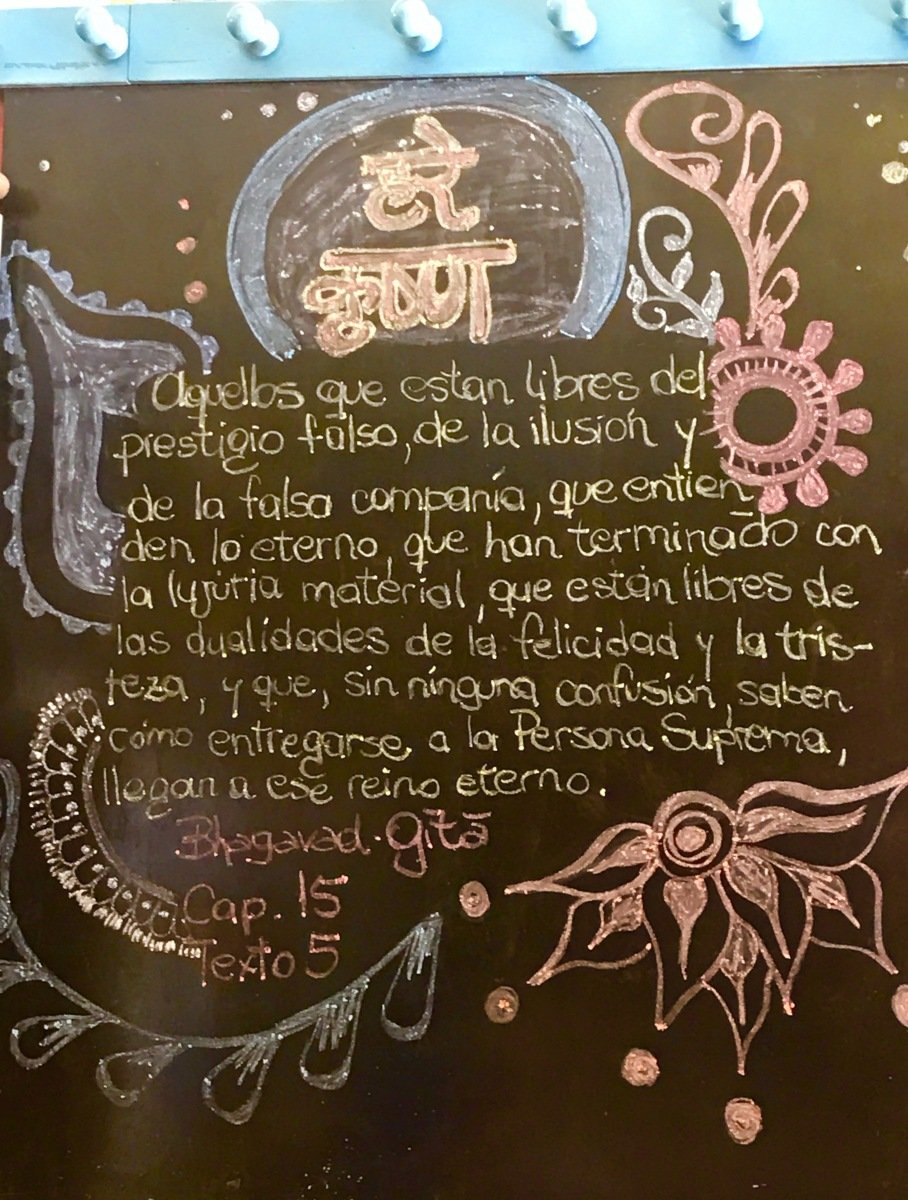 हरे
कृष्ण
Aquellos que estan libres del
prestigio falso, de la ilusión y
de la falsa companía, que entien
den lo eterno, que han terminado con
la lujuria material, que están libres de
las dualidades de la felicidad y la tris-
teza, y que, sin ninguna confusión, saben
cómo entregarse a la Persona Suprema,
llegan a ese reino eterno.
Bhagavad-Gītā
Cap. 15
Texto 5